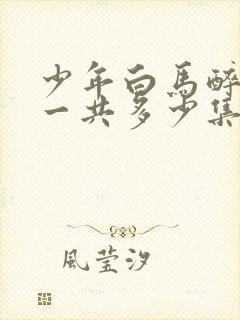 少年白馬醉
一共多少集
風莹汐